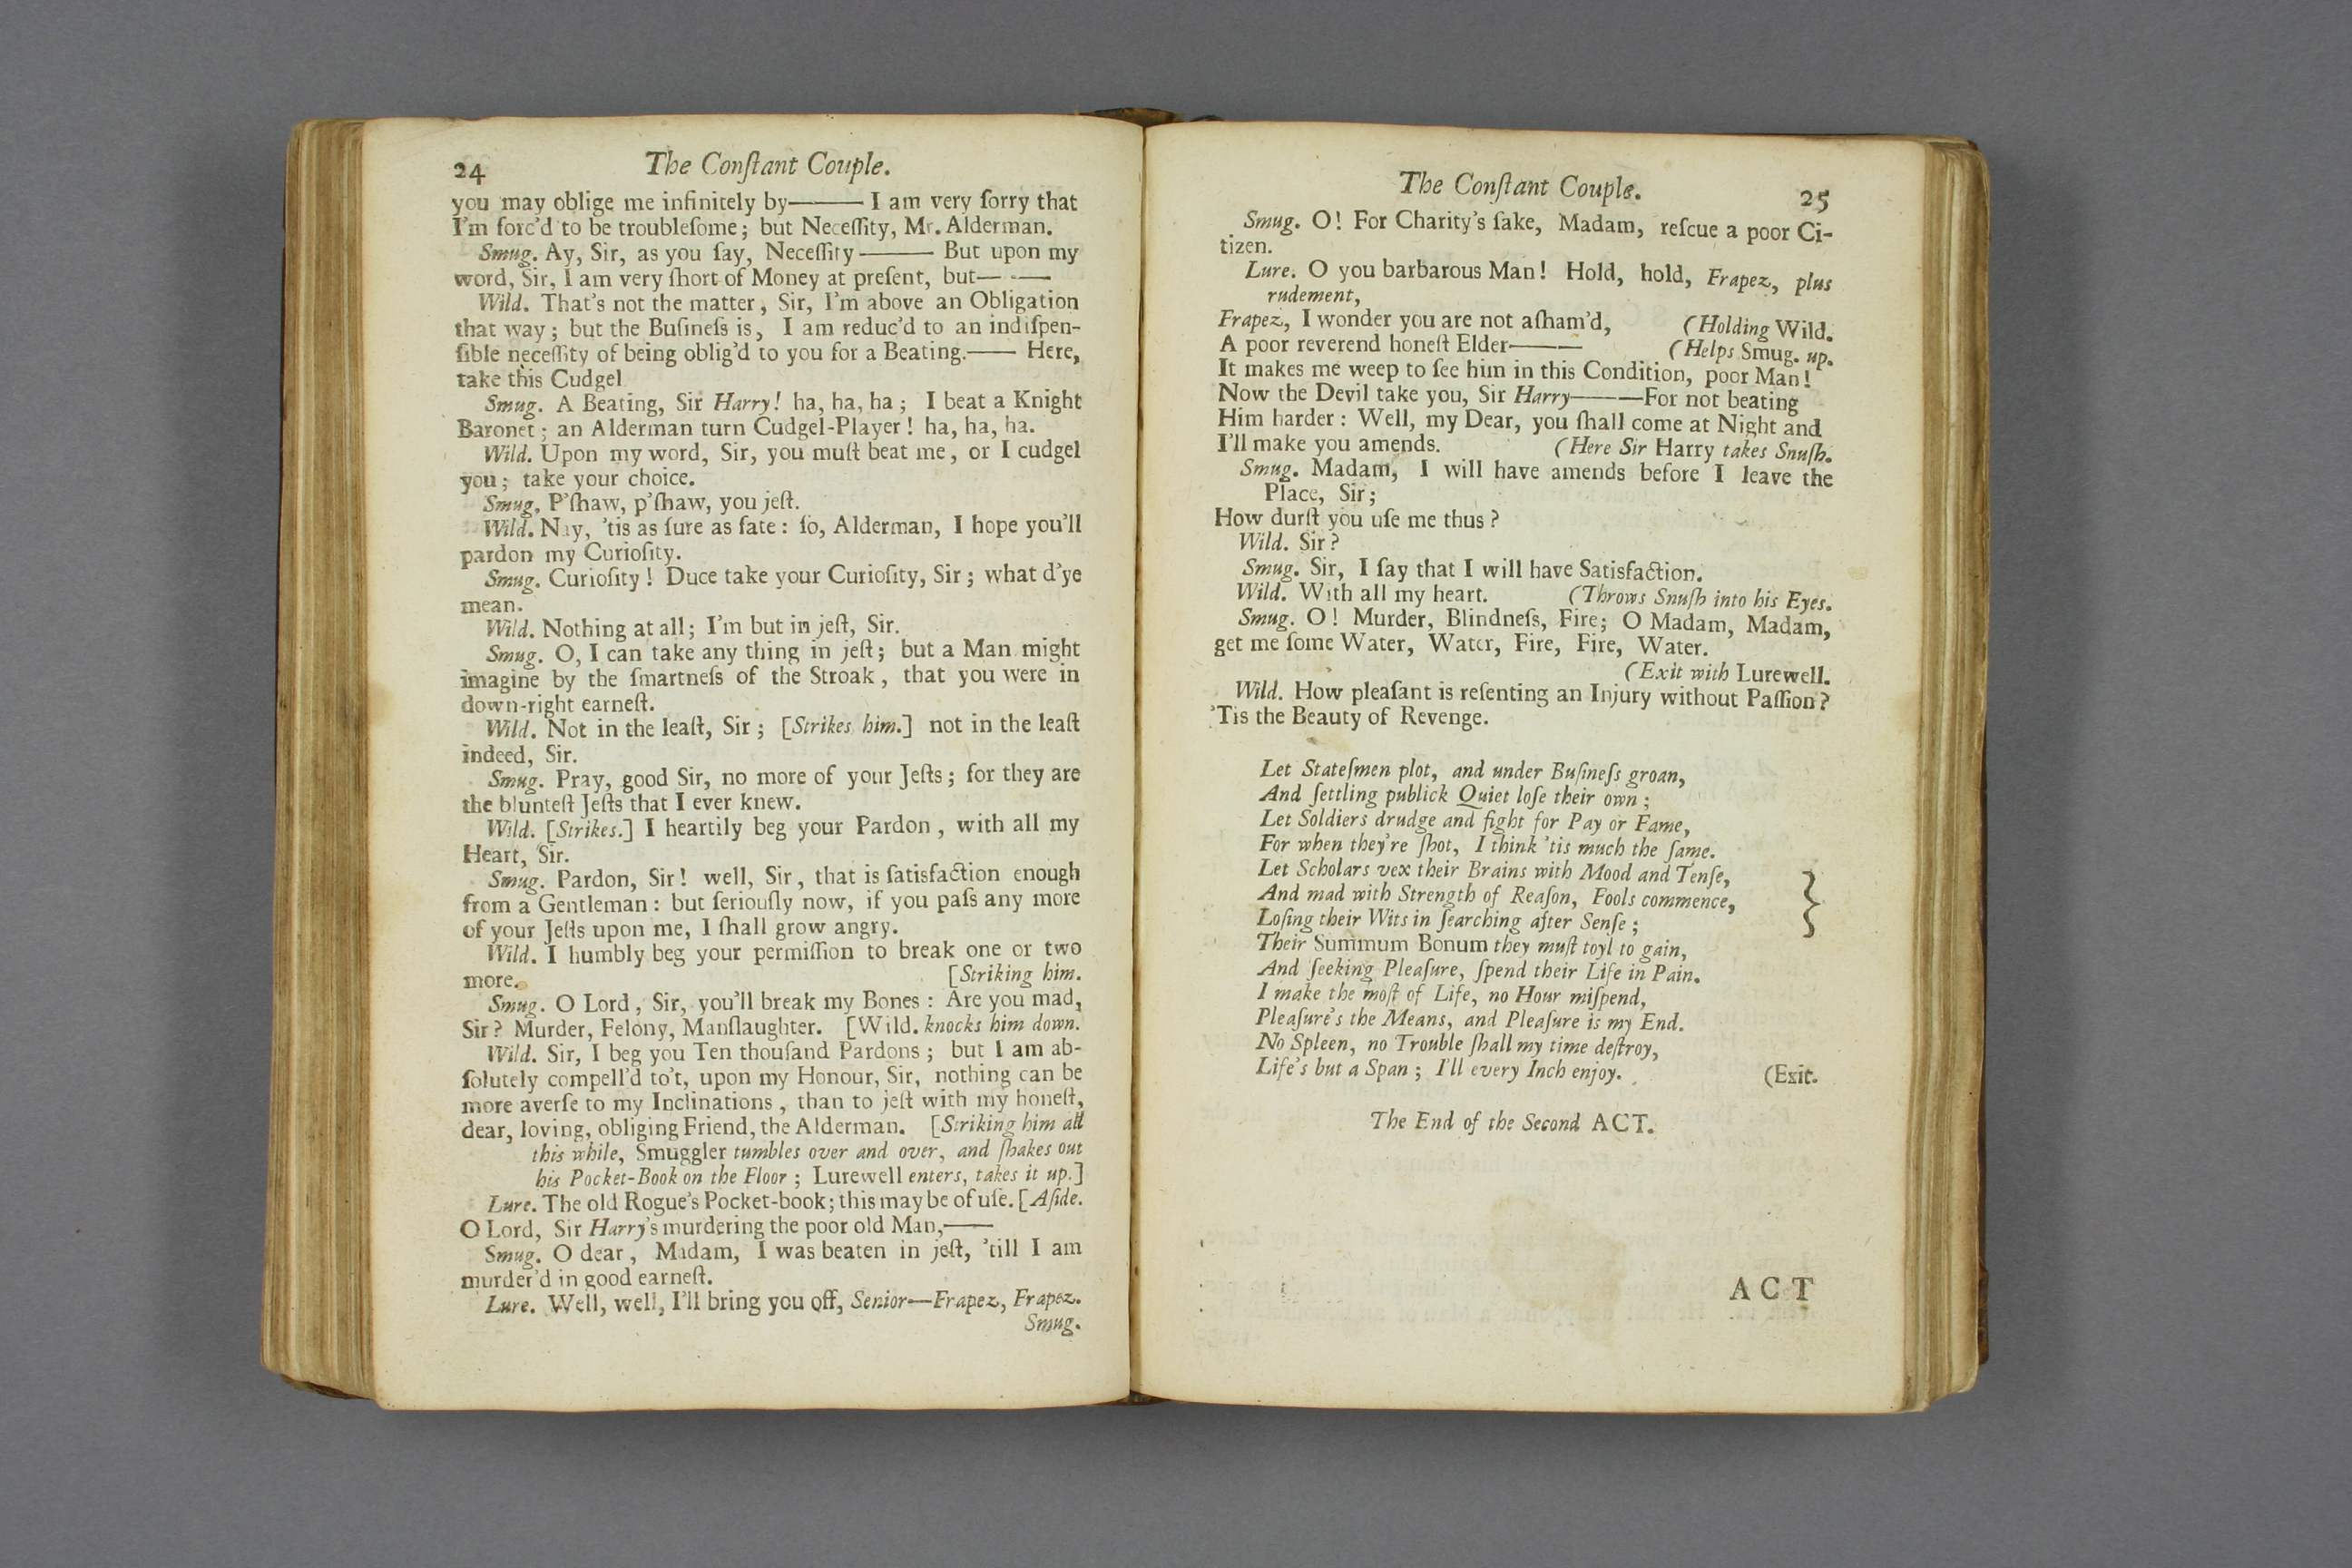 24 The Conſtant Couple.
you may oblige me infinitely by——— I am very ſorry that
I'm forc'd to be troubleſome; but Neceſſity, Mr. Alderman.
Smug. Ay, Sir, as you ſay, Neceſſity——— But upon my
word, Sir, I am very ſhort of Money at preſent, but— -—
Wild. That's not the matter, Sir, I'm above an Obligation
that way; but the Buſineſs is, I am reduc'd to an indiſpen-
ſible neceſſity of being oblig'd to you for a Beating.—— Here,
take this Cudgel
Smug. A Beating, Sir Harry! ha, ha, ha; I beat a Knight
Baronet; an Alderman turn Cudgel-Player! ha, ha, ha.
Wild. Upon my word, Sir, you muſt beat me, or I cudgel
you; take your choice.
Smug. P'ſhaw, p'ſhaw, you jeſt.
Wild. Nay, 'tis as ſure as fate: ſo, Alderman, I hope you'll
pardon my Curioſity.
Smug. Curioſity! Duce take your Curioſity, Sir; what d'ye
mean.
Wild. Nothing at all; I'm but in jeſt, Sir.
Smug. O, I can take any thing in jeſt; but a Man might
imagine by the ſmartneſs of the Stroak, that you were in
down-right earneſt.
Wild. Not in the leaſt, Sir; [Strikes him.] not in the leaſt
indeed, Sir.
Smug. Pray, good Sir, no more of your Jeſts; for they are
the blunteſt Jeſts that I ever knew.
Wild. [Strikes.] I heartily beg your Pardon, with all my
Heart, Sir.
Smug. Pardon, Sir! well, Sir, that is ſatisfaction enough
from a Gentleman: but ſeriouſly now, if you paſs any more
of your Jeſts upon me, I ſhall grow angry.
Wild. I humbly beg your permiſſion to break one or two
more. [Striking him.
Smug. O Lord, Sir, you'll break my Bones: Are you mad,
Sir? Murder, Felony, Manſlaughter. [Wild. knocks him down.
Wild. Sir, I beg you Ten thouſand Pardons; but I am ab-
ſolutely compell'd to't, upon my Honour, Sir, nothing can be
more averſe to my Inclinations, than to jeſt with my honeſt,
dear, loving, obliging Friend, the Alderman. [Striking him all
this while, Smuggler tumbles over and over, and ſhakes out
his Pocket-Book on the Floor; Lurewell enters, takes it up.]
Lure. The old Rogue's Pocket-book; this may be of uſe. [Aſide.
O Lord, Sir Harry's murdering the poor old Man,——
Smug. O dear, Madam, I was beaten in jeſt, 'till I am
murder'd in good earneſt.
Lure. Well, well, I'll bring you off, Senior—Frapez, Frapez.
Smug.
The Conſtant Couple. 25
Smug. O! For Charity's ſake, Madam, reſcue a poor Ci-
tizen.
Lure. O you barbarous Man! Hold, hold, Frapez, plus
rudement,
Frapez, I wonder you are not aſham'd, (Holding Wild.
A poor reverend honeſt Elder——— (Helps Smug. up.
It makes me weep to ſee him in this Condition, poor Man!
Now the Devil take you, Sir Harry———For not beating
Him harder: Well, my Dear, you ſhall come at Night and
I'll make you amends. (Here Sir Harry takes Snuſh.
Smug. Madam, I will have amends before I leave the
Place, Sir;
How durſt you uſe me thus?
Wild. Sir?
Smug. Sir, I ſay that I will have Satisfaction.
Wild. With all my heart. (Throws Snuſh into his Eyes.
Smug. O! Murder, Blindneſs, Fire; O Madam, Madam,
get me ſome Water, Water, Fire, Fire, Water.
(Exit with Lurewell.
Wild. How pleaſant is reſenting an Injury without Paſſion?
'Tis the Beauty of Revenge.
Let Stateſmen plot, and under Buſineſs groan,
And ſettling publick Quiet loſe their own;
Let Soldiers drudge and fight for Pay or Fame,
For when they're ſhot, I think 'tis much the ſame.
Let Scholars vex their Brains with Mood and Tenſe,
And mad with Strength of Reaſon, Fools commence,
Loſing their Wits in ſearching after Senſe;
Their Summum Bonum they muſt toyl to gain,
And ſeeking Pleaſure, ſpend their Life in Pain.
I make the moſt of Life, no Hour miſpend,
Pleaſure's the Means, and Pleaſure is my End.
No Spleen, no Trouble ſhall my time deſtroy,
Life's but a Span; I'll every Inch enjoy. (Exit.
The End of the Second ACT.
ACT